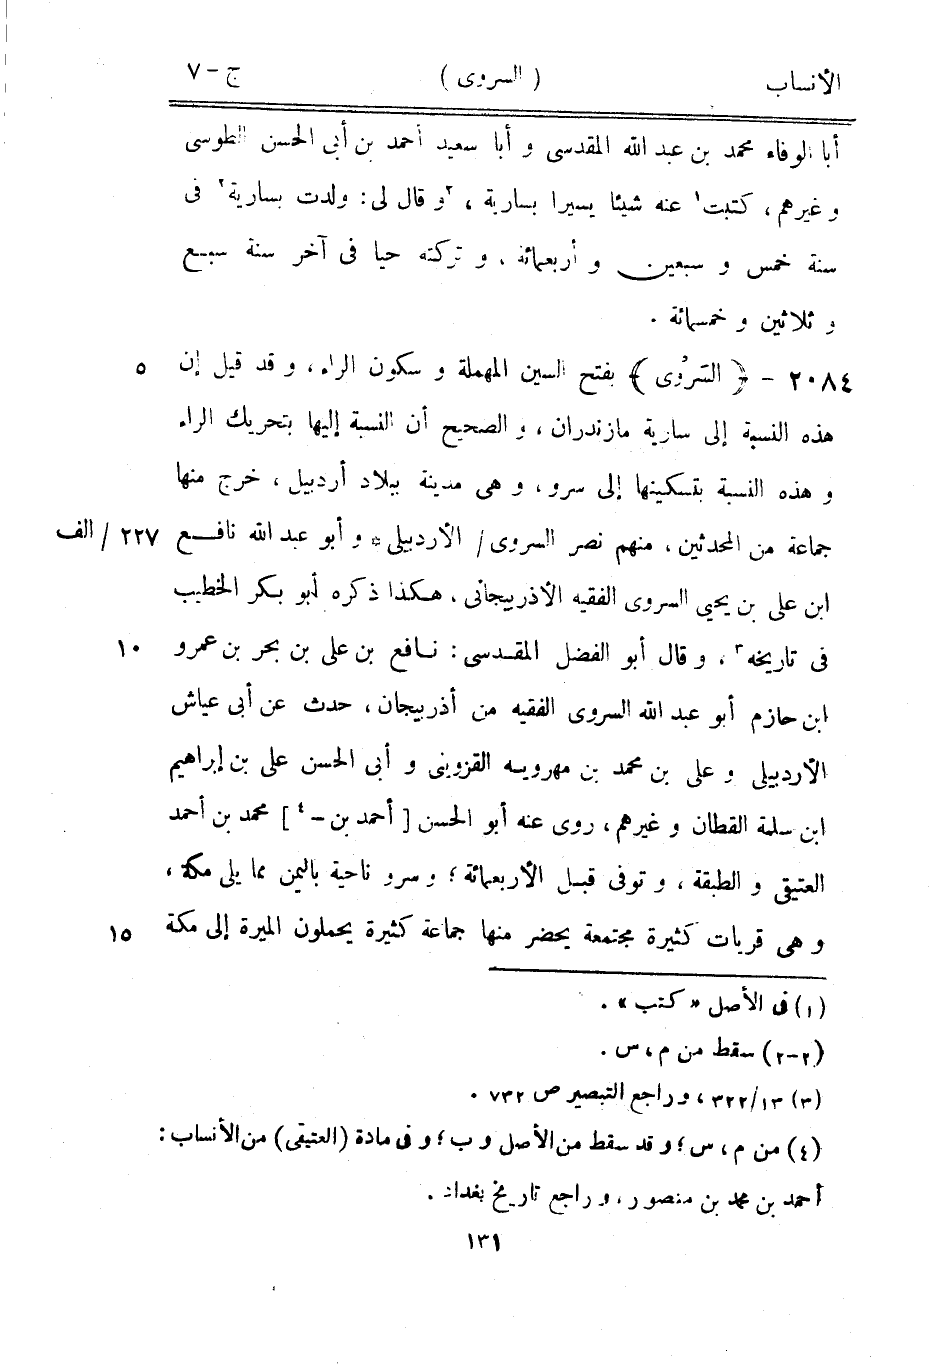 الأنساب ( السروى ) ج - ٧
أبا الوفاء محمد بن عبد الله المقدسى و أبا سعيد أحمد بن أبى الحسن الطوسى
و غيرهم ، كتبت١ عنه شيئا يسيرا بسارية ، ٢و قال لى : ولدت بسارية٢ فى
سنة خمس و سبعين و أربعمائة ، و تركته حيا فى آخر سنة سبع
و ثلاثين و خمسمائة .
٢٠٨٤ - ﴿ السَرْوى ﴾ بفتح السين المهملة و سكون الراء ، و قد قيل إن ٥
هذه النسبة إلى سارية مازندران ، و الصحيح أن النسبة إليها بتحريك الراء
و هذه النسبة بتسكينها إلى سرو ، و هى مدينة ببلاد أردبيل ، خرج منها
جماعة من المحدثين ، منهم نصر السروى / الأردبيلى * و أبو عبد الله نافع ٢٢٧ / الف
ابن على بن يحيى السروى الفقيه الأذربيجانى ، هكذا ذكره أبو بكر الخطيب
فى تاريخه٣ ، و قال أبو الفضل المقدسى : نافع بن على بن بحر بن عمرو ١٠
ابن حازم أبو عبد الله السروى الفقيه من أذربيجان ، حدث عن أبى عياش
الأردبيلى و على بن محمد بن مهرويه القزوينى و أبى الحسن على بن إبراهيم
ابن سلمة القطان و غيرهم ، روى عنه أبو الحسن [ أحمد بن - ٤ ] محمد بن أحمد
العتيقى و الطبقة ، و توفى قبل الأربعمائة ؛ و سرو ناحية باليمن مما يلى مكة ،
و هى قريات كثيرة مجتمعة يحضر منها جماعة كثيرة يحملون الميرة إلى مكة ١٥
(١) فى الأصل « كتب » .
(٢-٢) سقط من م ، س .
(٣) ٣٢٢/١٣ ، و راجع التبصير ص ٧٣٢ .
(٤) من م ، س ؛ و قد سقط من الأصل و ب ؛ و فى مادة (العتيقى) من الأنساب :
أحمد بن محمد بن منصور ، و راجع تاريخ بغداد .
١٣١